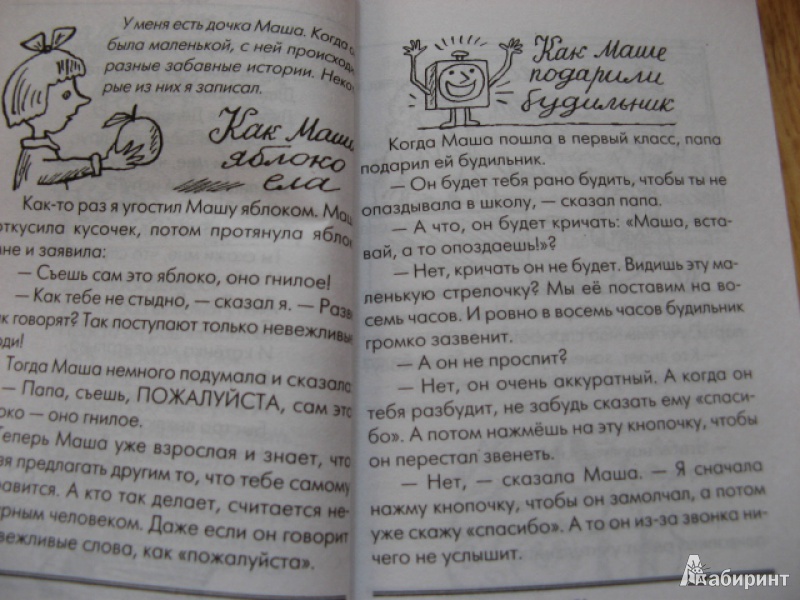 У меня есть дочка Маша. Когда
была маленькой, с ней происходи
разные забавные истории. Неко
рые из них я записал.
Как Маша
яблоко
ела
Как-то раз я угостил Машу яблоком. Маш
откусила кусочек, потом протянула яблок
мне и заявила:
— Съешь сам это яблоко, оно гнилое!
— Как тебе не стыдно, — сказал я. — Разве
к говорят? Так поступают только невежливые
юди!
Тогда Маша немного подумала и сказала
— Папа, съешь, ПОЖАЛУЙСТА, сам это
локо — оно гнилое.
Теперь Маша уже взрослая и знает, что
зя предлагать другим то, что тебе самому
равится. А кто так делает, считается не-
урным человеком. Даже если он говорит
вежливые слова, как «пожалуйста».
Как Маше
подарили
будильник
Когда Маша пошла в первый класс, папа
подарил ей будильник.
— Он будет тебя рано будить, чтобы ты не
опаздывала в школу, — сказал папа.
— А что, он будет кричать: «Маша, вста-
вай, а то опоздаешь!»?
— Нет, кричать он не будет. Видишь эту ма-
ленькую стрелочку? Мы её поставим на во-
семь часов. И ровно в восемь часов будильник
громко зазвенит.
— А он не проспит?
— Нет, он очень аккуратный. А когда он
тебя разбудит, не забудь сказать ему «спаси-
бо». А потом нажмёшь на эту кнопочку, чтобы
он перестал звенеть.
— Нет, — сказала Маша. — Я сначала
нажму кнопочку, чтобы он замолчал, а потом
уже скажу «спасибо». А то он из-за звонка ни-
чего не услышит.
Лабиринт